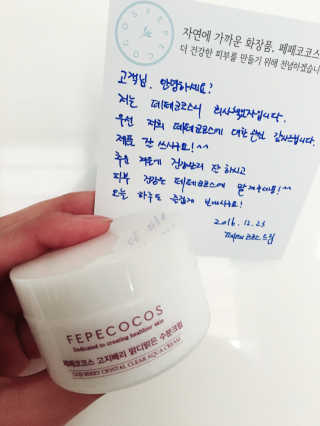 FEPECOCOS
자연에 가까운 화장품, 페페코코스
더 건강한 피부를 만들기 위해 전념하겠습니
고객님. 안녕하세요?
저는 페페코코스의 입니다.
우선 저희 페페코코스에 대한 관심 감사드립니다.
제품 잘 쓰시구요!^^
추운 겨울에 건강관리 잘 하시고
피부 건강은 페페코코스에 맡겨주세요!^^
오늘 하루도 즐겁게 보내시구요!
2016. 12. 23
페페코코스 드림
FEPECOCOS
Dedicated to creating healthier skin
페페코코스 고지베리 맑디맑은 수분크림
GOJI BERRY CRYSTAL CLEAR AQUA CREAM